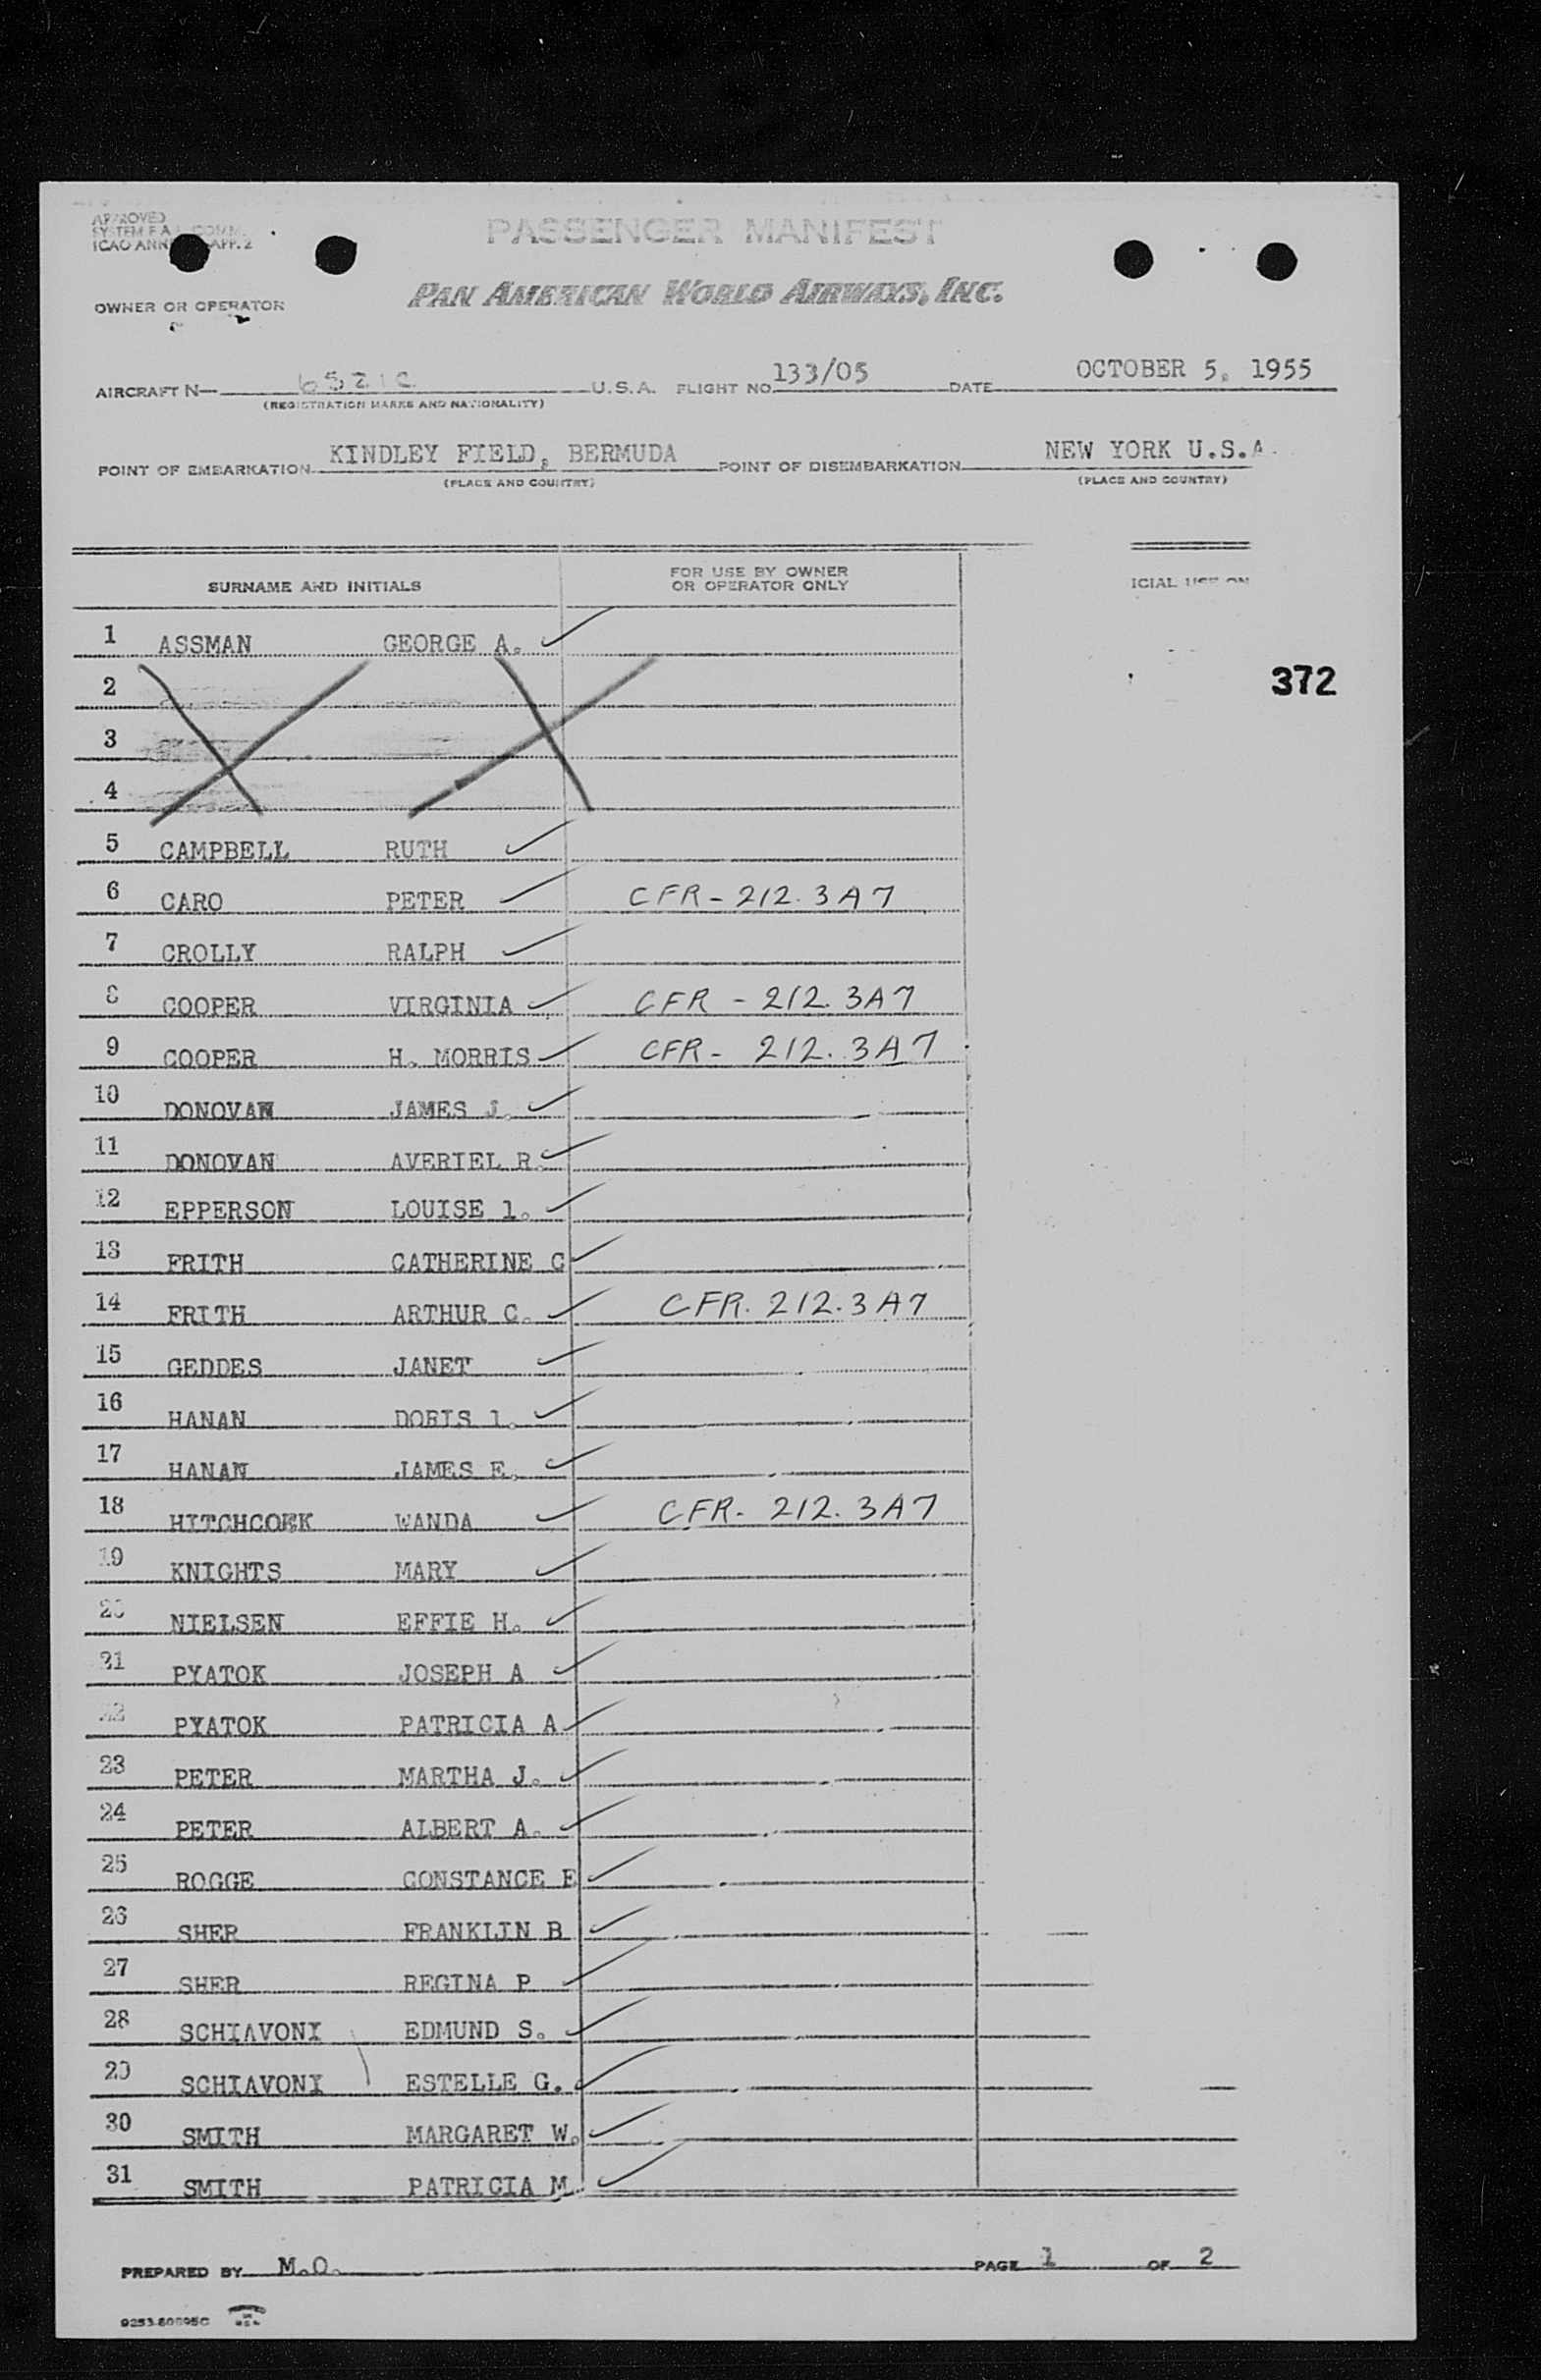 APPROVED
SYSTEM F.A.L. COMM.
ICAO APP. 2
PASSENGER MANIFEST
OWNER OR OPERATOR PAN AMERICAN WORLD AIRWAYS, INC.
AIRCRAFT N— 6521C U.S.A. FLIGHT NO. 133/05 DATE OCTOBER 5, 1955
(REGISTRATION MARKS AND NATIONALITY)
POINT OF EMBARKATION KINDLEY FIELD, BERMUDA POINT OF DISEMBARKATION NEW YORK U.S.A.
(PLACE AND COUNTRY) (PLACE AND COUNTRY)
SURNAME AND INITIALS FOR USE BY OWNER OR OPERATOR ONLY ICIAL USE ON
1 ASSMAN GEORGE A.
2 372
3
4
5 CAMPBELL RUTH
6 CARO PETER CFR-212.3A7
7 CROLLY RALPH
8 COOPER VIRGINIA CFR - 212.3A7
9 COOPER H. MORRIS CFR- 212.3A7
10 DONOVAN JAMES J.
11 DONOVAN AVERIEL R.
12 EPPERSON LOUISE l.
13 FRITH CATHERINE C
14 FRITH ARTHUR C. CFR. 212.3A7
15 GEDDES JANET
16 HANAN DORIS l.
17 HANAN JAMES E.
18 HITCHCOCK WANDA CFR- 212.3A7
19 KNIGHTS MARY
20 NIELSEN EFFIE H.
21 PYATOK JOSEPH A
22 PYATOK PATRICIA A
23 PETER MARTHA J.
24 PETER ALBERT A.
25 ROGGE CONSTANCE E
26 SHER FRANKLIN B
27 SHER REGINA P
28 SCHIAVONI EDMUND S.
29 SCHIAVONI ESTELLE G.
30 SMITH MARGARET W.
31 SMITH PATRICIA M.
PREPARED BY M.O. PAGE 1 OF 2